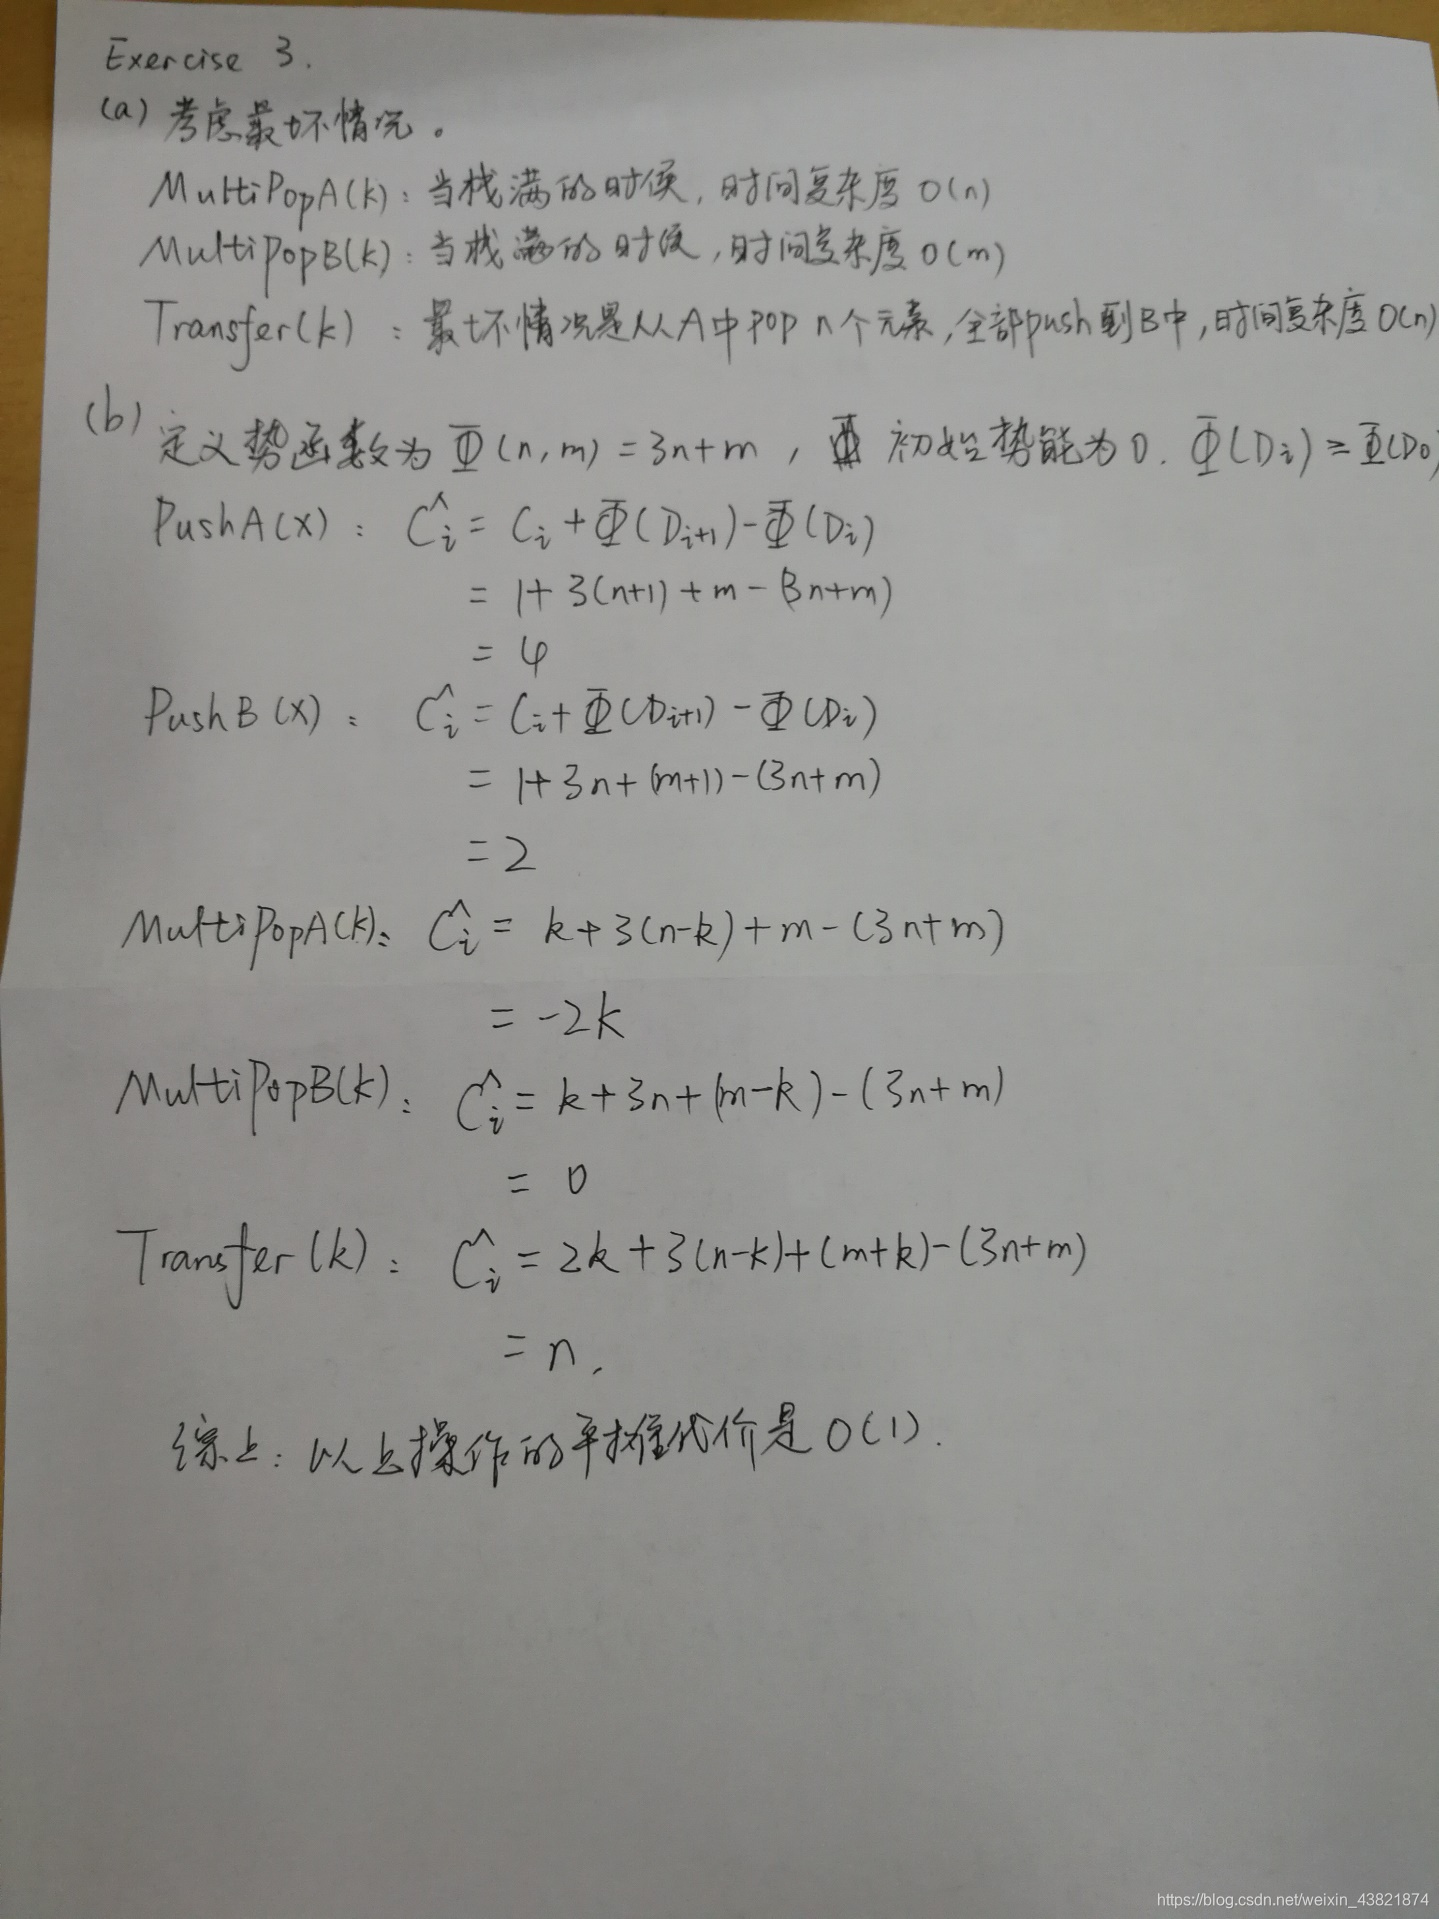 Exercise 3.
(a) 考虑最坏情况。
MultiPopA(k): 当栈满的时候, 时间复杂度 O(n)
MultiPopB(k): 当栈满的时候, 时间复杂度 O(m)
Transfer(k): 最坏情况是从A中pop n个元素, 全部push到B中, 时间复杂度 O(n)
(b) 定义势函数为 Φ(n, m) = 3n+m, 初始势能为0. Φ(Di) ≥ Φ(D0)
PushA(X): Ĉi = Ci + Φ(Di+1) - Φ(Di)
= 1+ 3(n+1) + m - (3n+m)
= 4
PushB(X): Ĉi = Ci + Φ(Di+1) - Φ(Di)
= 1+ 3n + (m+1) - (3n+m)
= 2
MultiPopA(k): Ĉi = k + 3(n-k) + m - (3n+m)
= -2k
MultiPopB(k): Ĉi = k + 3n + (m-k) - (3n+m)
= 0
Transfer(k): Ĉi = 2k + 3(n-k) + (m+k) - (3n+m)
= n.
综上: 以上操作的平摊代价是 O(1).
https://blog.csdn.net/weixin_43821874